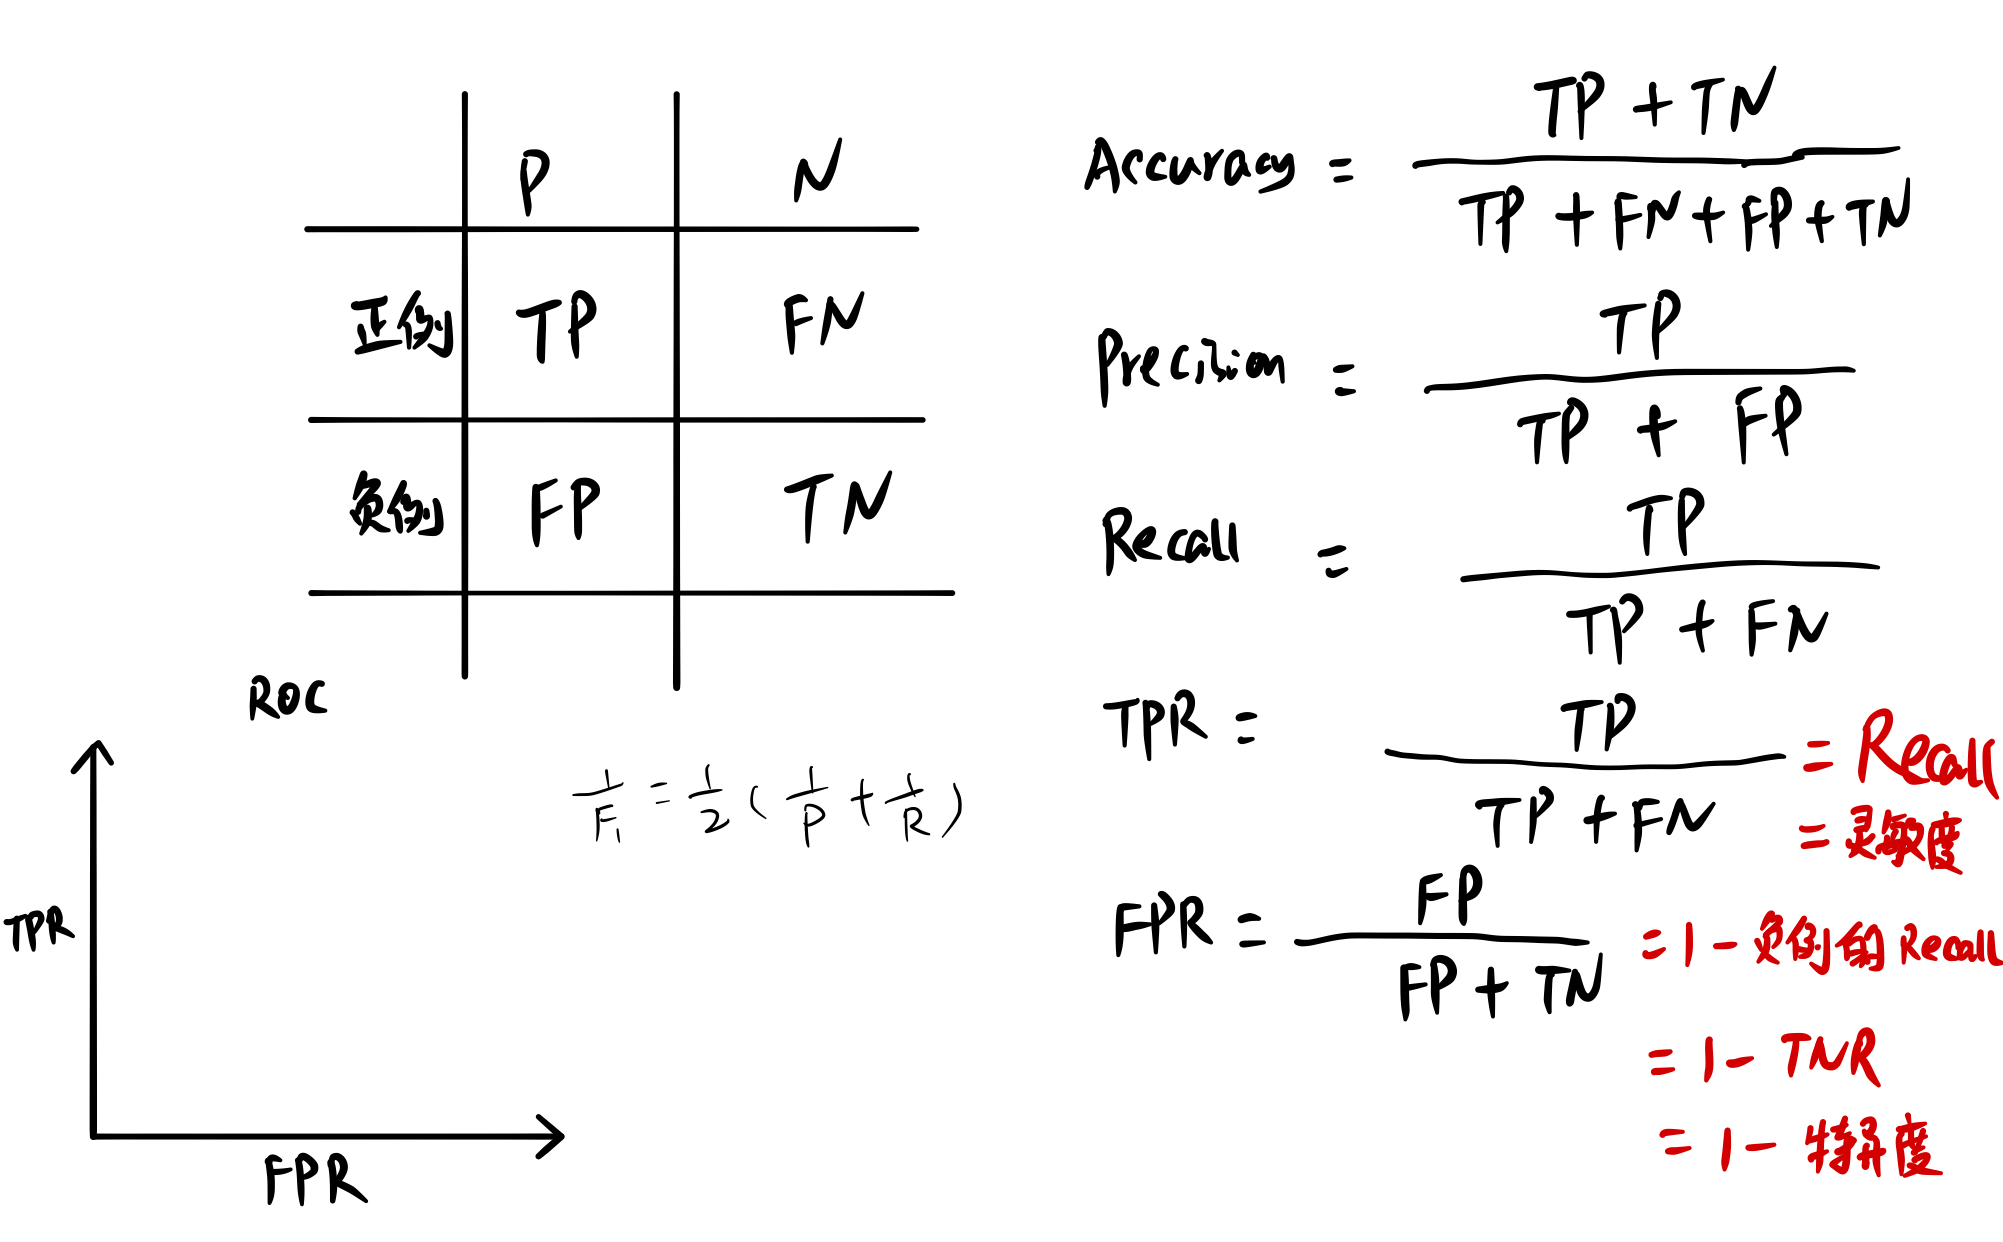 P N
正例 TP FN
负例 FP TN
ROC
TPR
FPR
1/F₁ = 1/2 ( 1/P + 1/R )
Accuracy = TP + TN / TP + FN + FP + TN
Precision = TP / TP + FP
Recall = TP / TP + FN
TPR = TP / TP + FN = Recall
= 灵敏度
FPR = FP / FP + TN = 1 - 负例的 Recall
= 1 - TNR
= 1 - 特异度